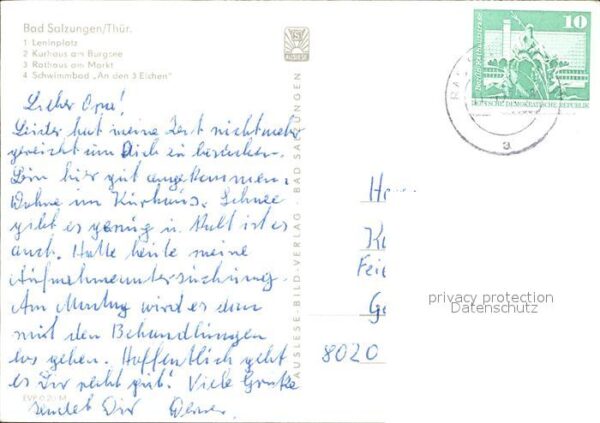 Bad Salzungen/Thür.
1 Leninplatz
2 Kurhaus am Burgsee
3 Rathaus am Markt
4 Schwimmbad „An den 3 Eichen"
Lieber Opa!
Leider hat meine Zeit nicht mehr
gereicht um Dich zu besuchen.
Bin hier gut angekommen.
Wohne im Kurhaus. Schnee
gibt es genug u. kalt ist es
auch. Hatte heute meine
Aufnahmeuntersuchung.
Am Montag wird es dann
mit den Behandlungen
los gehen. Hoffentlich geht
es Dir recht gut! Viele Grüße
sendet Dir
AUSLESE-BILD-VERLAG · BAD SALZUNGEN
10
DEUTSCHE DEMOKRATISCHE REPUBLIK
a
8020
privacy protection
Datenschutz